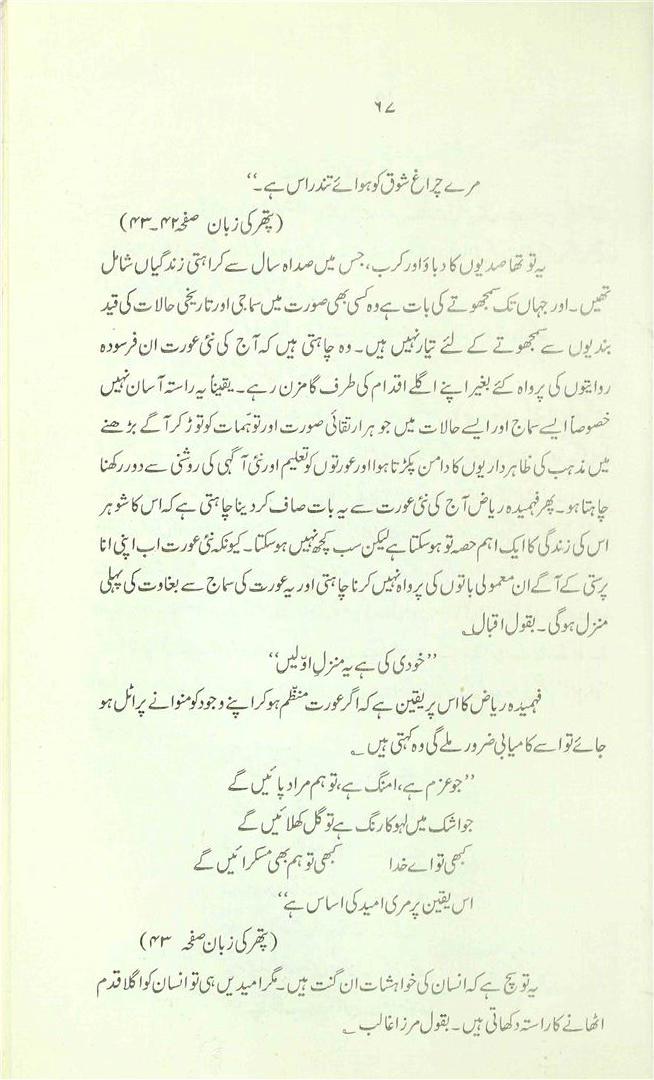 ۶۷
مرے چراغ شوق کو ہوائے تند راس ہے۔‘‘
(پتھر کی زبان صفحہ ۴۲۔۴۳)
یہ تو تھا صدیوں کا دباؤ اور کرب، جس میں صداہ سال سے کراہتی زندگیاں شامل
تھیں۔ اور جہاں تک سمجھوتے کی بات ہے وہ کسی بھی صورت میں سماجی اور تاریخی حالات کی قید
بندیوں سے سمجھوتے کے لئے تیار نہیں ہیں۔ وہ چاہتی ہیں کہ آج کی نئی عورت ان فرسودہ
روایتوں کی پرواہ کئے بغیر اپنے اگلے اقدام کی طرف گامزن رہے۔ یقیناً یہ راستہ آسان نہیں
خصوصاً ایسے سماج اور ایسے حالات میں جو ہر ارتقائی صورت اور توہّمات کو توڑ کر آگے بڑھنے
میں مذہب کی ظاہرداریوں کا دامن پکڑتا ہوا اور عورتوں کو تعلیم اور نئی آگہی کی روشنی سے دور رکھنا
چاہتا ہو۔ پھر فہمیدہ ریاض آج کی نئی عورت سے یہ بات صاف کردینا چاہتی ہے کہ اس کا شوہر
اس کی زندگی کا ایک اہم حصہ تو ہوسکتا ہے لیکن سب کچھ نہیں ہوسکتا۔ کیونکہ نئی عورت اب اپنی انا
پرستی کے آگے ان معمولی باتوں کی پرواہ نہیں کرنا چاہتی اور یہ عورت کی سماج سے بغاوت کی پہلی
منزل ہوگی۔ بقول اقبال؂
’’خودی کی ہے یہ منزلِ اوّلیں‘‘
فہمیدہ ریاض کا اس پر یقین ہے کہ اگر عورت منظّم ہوکر اپنے وجود کو منوانے پر اٹل ہو
جائے تو اسے کامیابی ضرور ملے گی وہ کہتی ہیں؂
’’جو عزم ہے، امنگ ہے، تو ہم مراد پائیں گے
جو اشک میں لہو کا رنگ ہے تو گل کھلائیں گے
کبھی تو اے خدا کبھی تو ہم بھی مسکرائیں گے
اس یقین پر مری امید کی اساس ہے‘‘
(پتھر کی زبان صفحہ ۴۳)
یہ تو سچ ہے کہ انسان کی خواہشات ان گنت ہیں۔ مگر امیدیں ہی تو انسان کو اگلا قدم
اٹھانے کا راستہ دکھاتی ہیں۔ بقول مرزا غالب؂